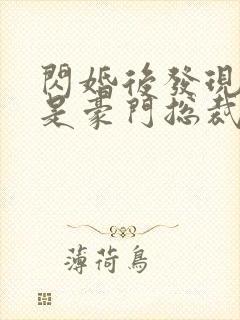 閃婚後發現
是豪門總裁
薄荷鳥